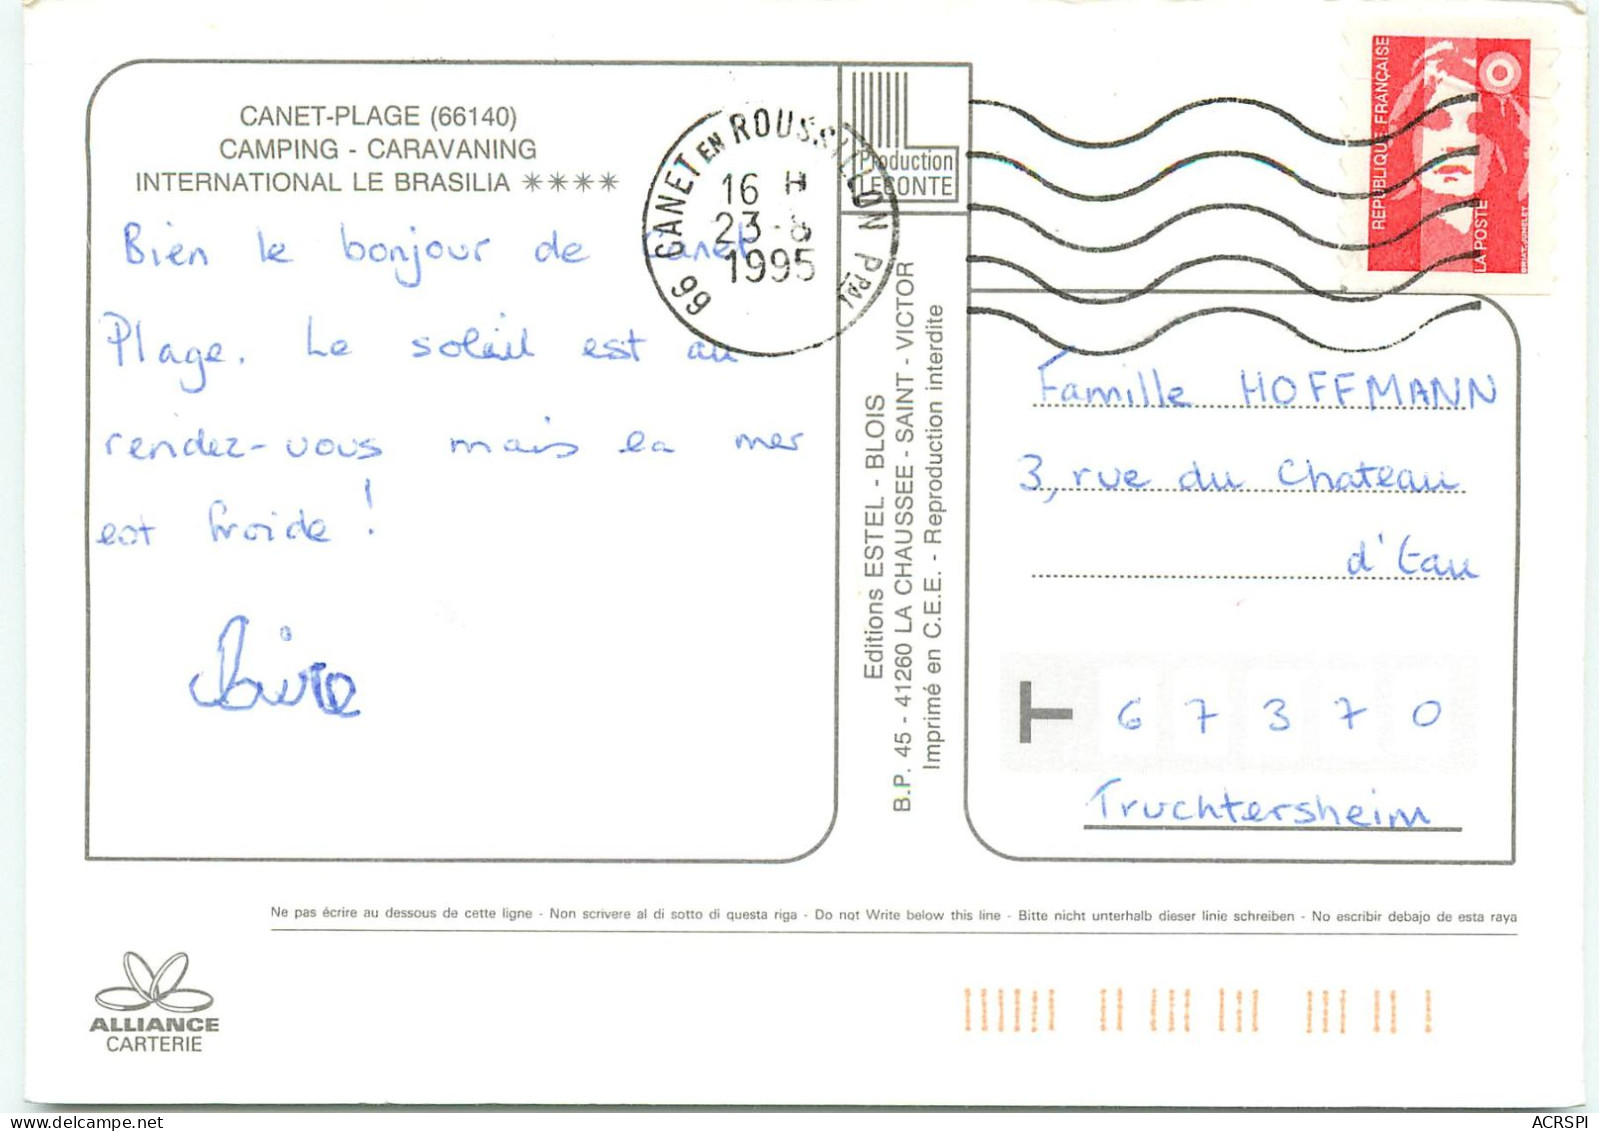 CANET-PLAGE (66140)
CAMPING - CARAVANING
INTERNATIONAL LE BRASILIA ✳✳✳✳
Bien le bonjour de Canet
Plage. Le soleil est au
rendez-vous mais la mer
est froide !
66 CANET EN ROUSSILLON PPAL
16 H
23-8
1995
Production
LECONTE
Editions ESTEL - BLOIS
B.P. 45 - 41260 LA CHAUSSEE - SAINT - VICTOR
Imprimé en C.E.E. - Reproduction interdite
REPUBLIQUE FRANÇAISE
LA POSTE
Famille HOFFMANN
3, rue du Chateau
d'Eau
67370
Truchtersheim
Ne pas écrire au dessous de cette ligne - Non scrivere al di sotto di questa riga - Do not Write below this line - Bitte nicht unterhalb dieser linie schreiben - No escribir debajo de esta raya
ALLIANCE
CARTERIE
ACRSPI